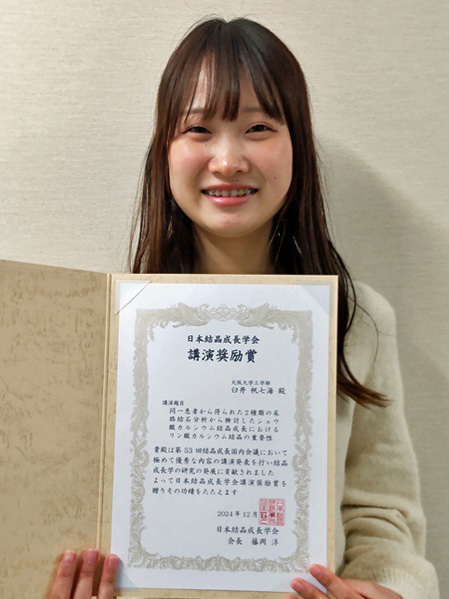 日本結晶成長学会
講演奨励賞
大阪大学工学部
臼井 帆七海 殿
講演題目
同一患者から得られた2種類の尿
路結石分析から検討したシュウ
酸カルシウム結晶成長における
リン酸カルシウム結晶の重要性
貴殿は第53回結晶成長国内会議において
極めて優秀な内容の講演発表を行い結晶
成長学の研究の発展に貢献されました
よって日本結晶成長学会講演奨励賞を
贈りその功績をたたえます
2024年12月
日本結晶成長学会
会長 藤岡 洋